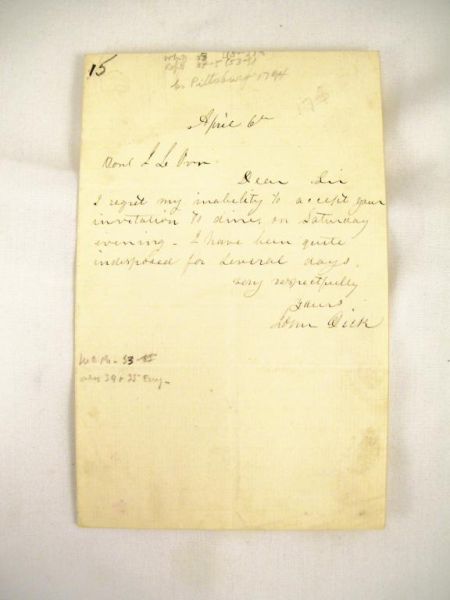 15
b. Pittsburg 1794
April 6th
Honl L L Orr
Dear Sir
I regret my inability to accept your
invitation to dine, on Saturday
evening - I have been quite
indisposed for several days.
very respectfully
yours
John Dick
53
39 & 35 Cong-